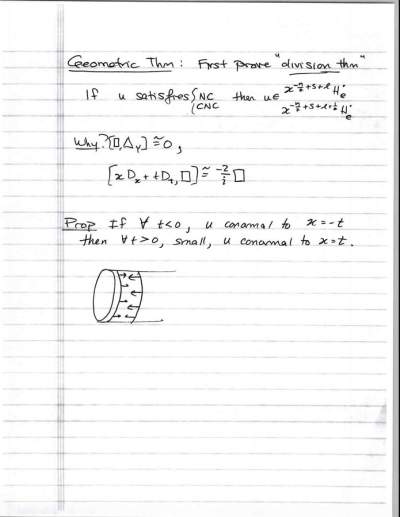 Geometric Thm: First prove "division thm"
If u satisfies { NC then u ∈ x^{-n/2+s+ℓ} H_e^•
{ CNC x^{-n/2+s+ℓ+1/2} H_e^•
Why? [□, Δ_Y] ≅ 0,
[x D_x + t D_t, □] ≅ -2/i □
Prop If ∀ t<0, u conormal to x = -t
then ∀ t>0, small, u conormal to x = t.